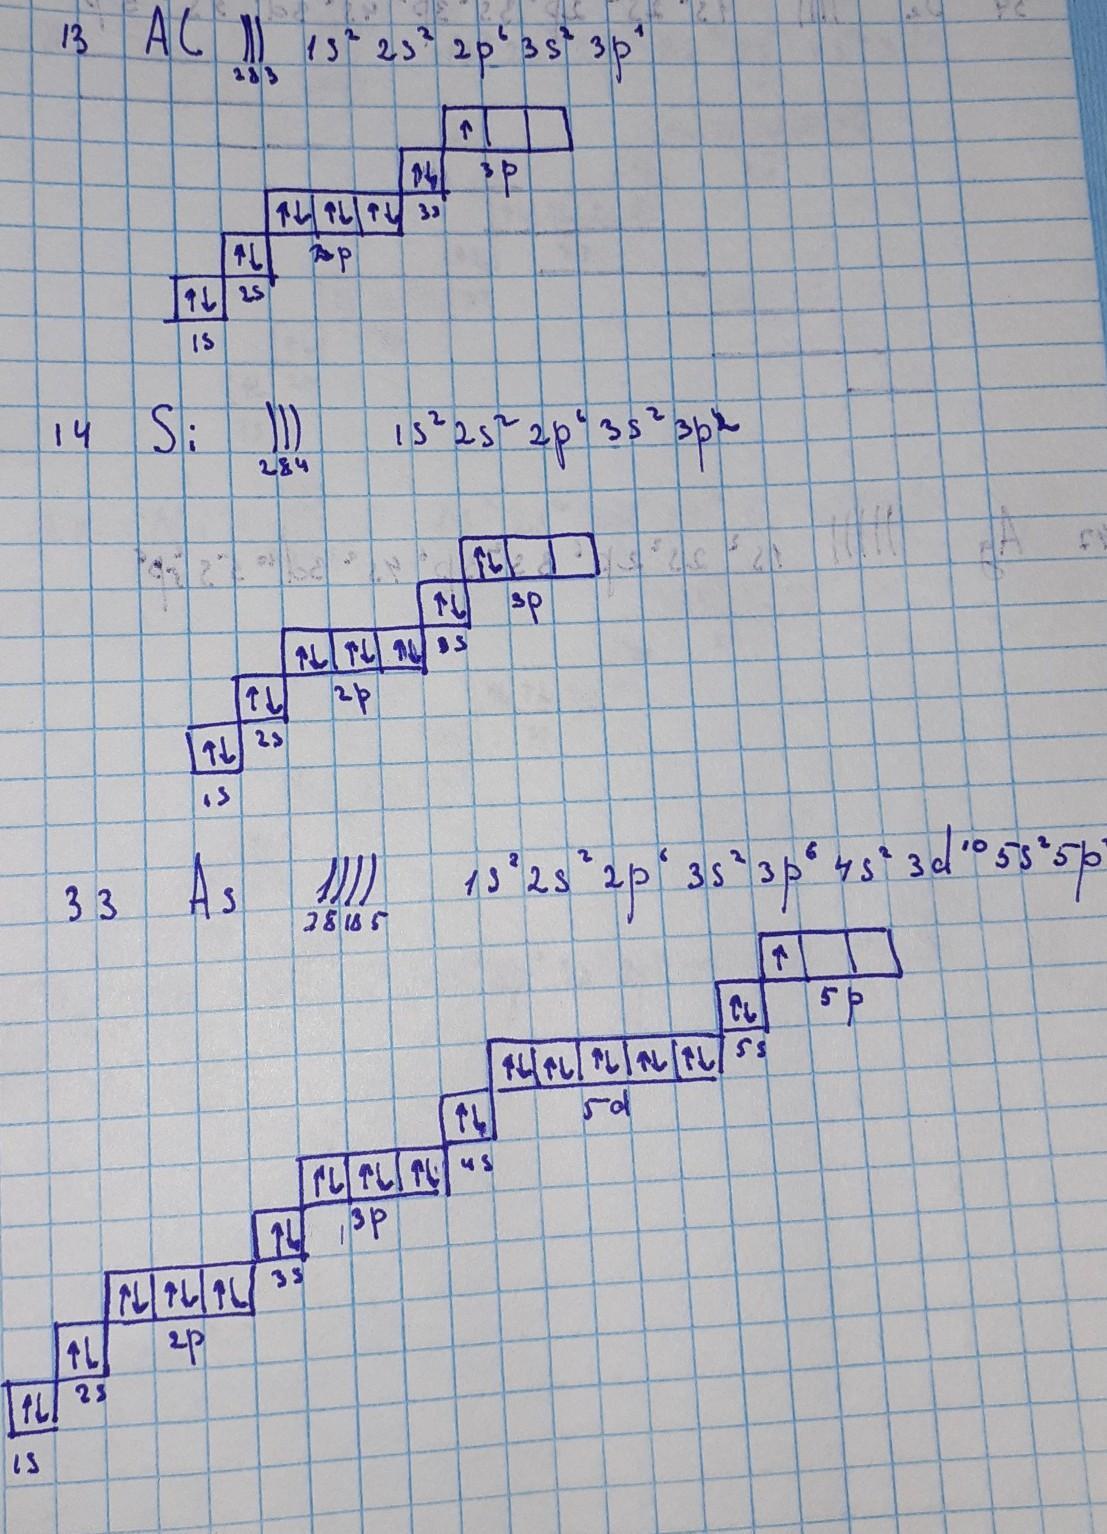 13 Al ))) 1s² 2s² 2p⁶ 3s² 3p¹
2 8 3
↑
3p
↑↓
3s
↑↓ ↑↓ ↑↓
2p
↑↓
2s
↑↓
1s
14 Si ))) 1s² 2s² 2p⁶ 3s² 3p²
2 8 4
↑↓
3p
↑↓
3s
↑↓ ↑↓ ↑↓
2p
↑↓
2s
↑↓
1s
33 As )))) 1s² 2s² 2p⁶ 3s² 3p⁶ 4s² 3d¹⁰ 5s² 5p
2 8 18 5
↑
5p
↑↓
5s
↑↓ ↑↓ ↑↓ ↑↓ ↑↓
5d
↑↓
4s
↑↓ ↑↓ ↑↓
3p
↑↓
3s
↑↓ ↑↓ ↑↓
2p
↑↓
2s
↑↓
1s